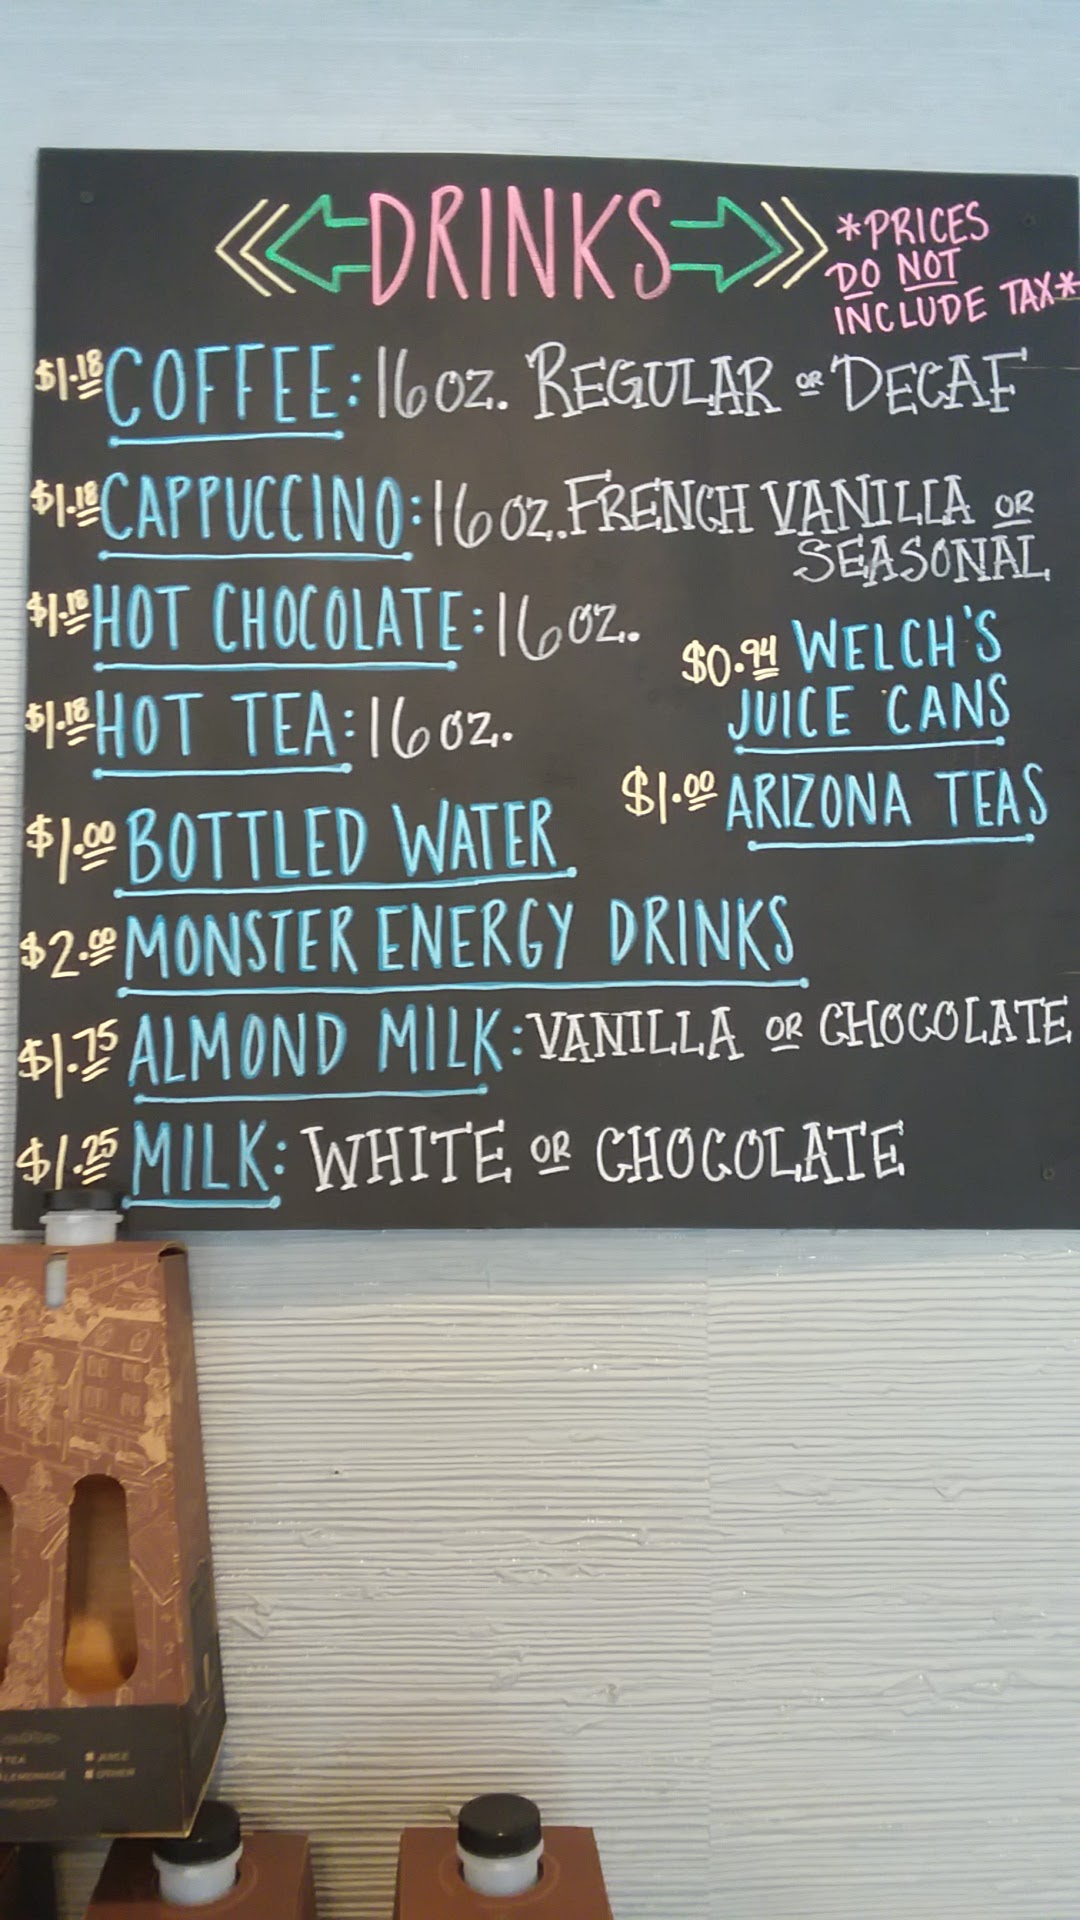 DRINKS
*PRICES
DO NOT
INCLUDE TAX*
$1.18 COFFEE: 16 OZ. REGULAR OR DECAF
$1.18 CAPPUCCINO: 16 OZ. FRENCH VANILLA OR
SEASONAL
$1.18 HOT CHOCOLATE: 16 OZ.
$1.18 HOT TEA: 16 OZ.
$0.94 WELCH'S
JUICE CANS
$1.00 ARIZONA TEAS
$1.00 BOTTLED WATER
$2.00 MONSTER ENERGY DRINKS
$1.75 ALMOND MILK: VANILLA OR CHOCOLATE
$1.25 MILK: WHITE OR CHOCOLATE
TEA JUICE
LEMONADE OTHER